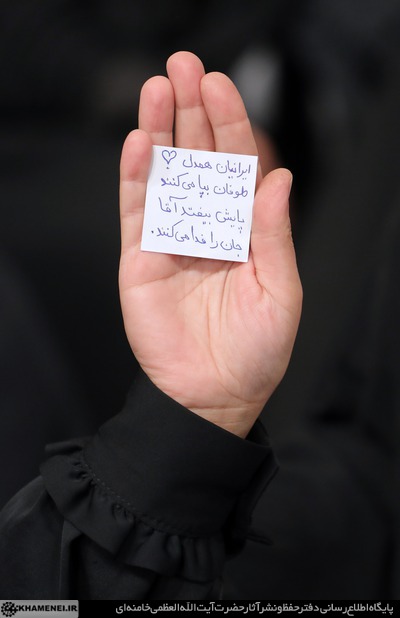 ایرانیان همدل
طوفان بپا می‌کنند
پایش بیفتد آقا
جان را فدا می‌کنند.
KHAMENEI.IR
پایگاه اطلاع‌رسانی دفتر حفظ و نشر آثار حضرت آیت‌الله‌العظمی خامنه‌ای